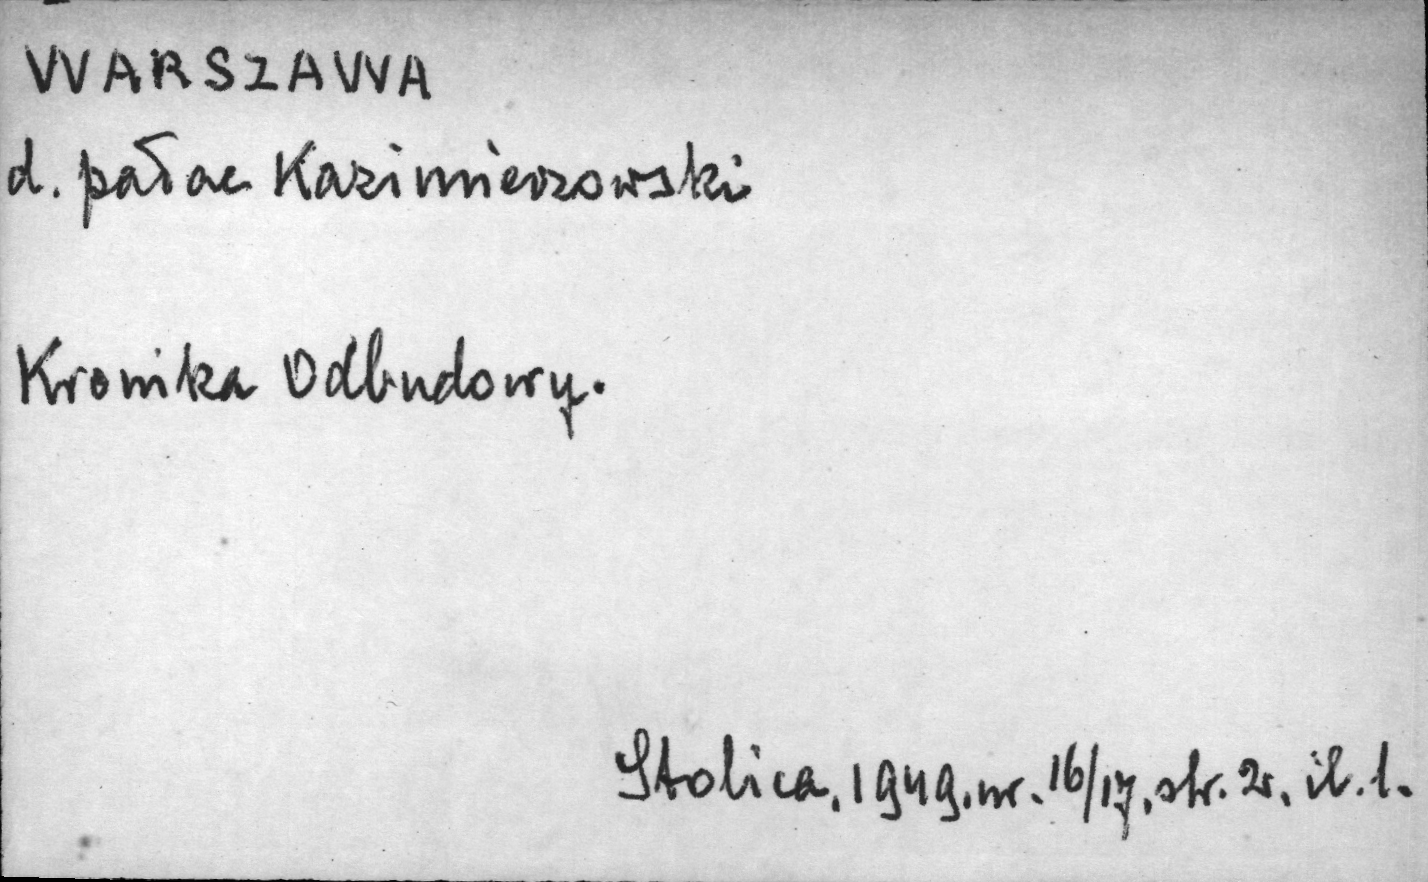 WARSZAWA
d. pałac Kazimierzowski
Kronika Odbudowy.
Stolica, 1949, nr. 16/17, str. 2, il. 1.